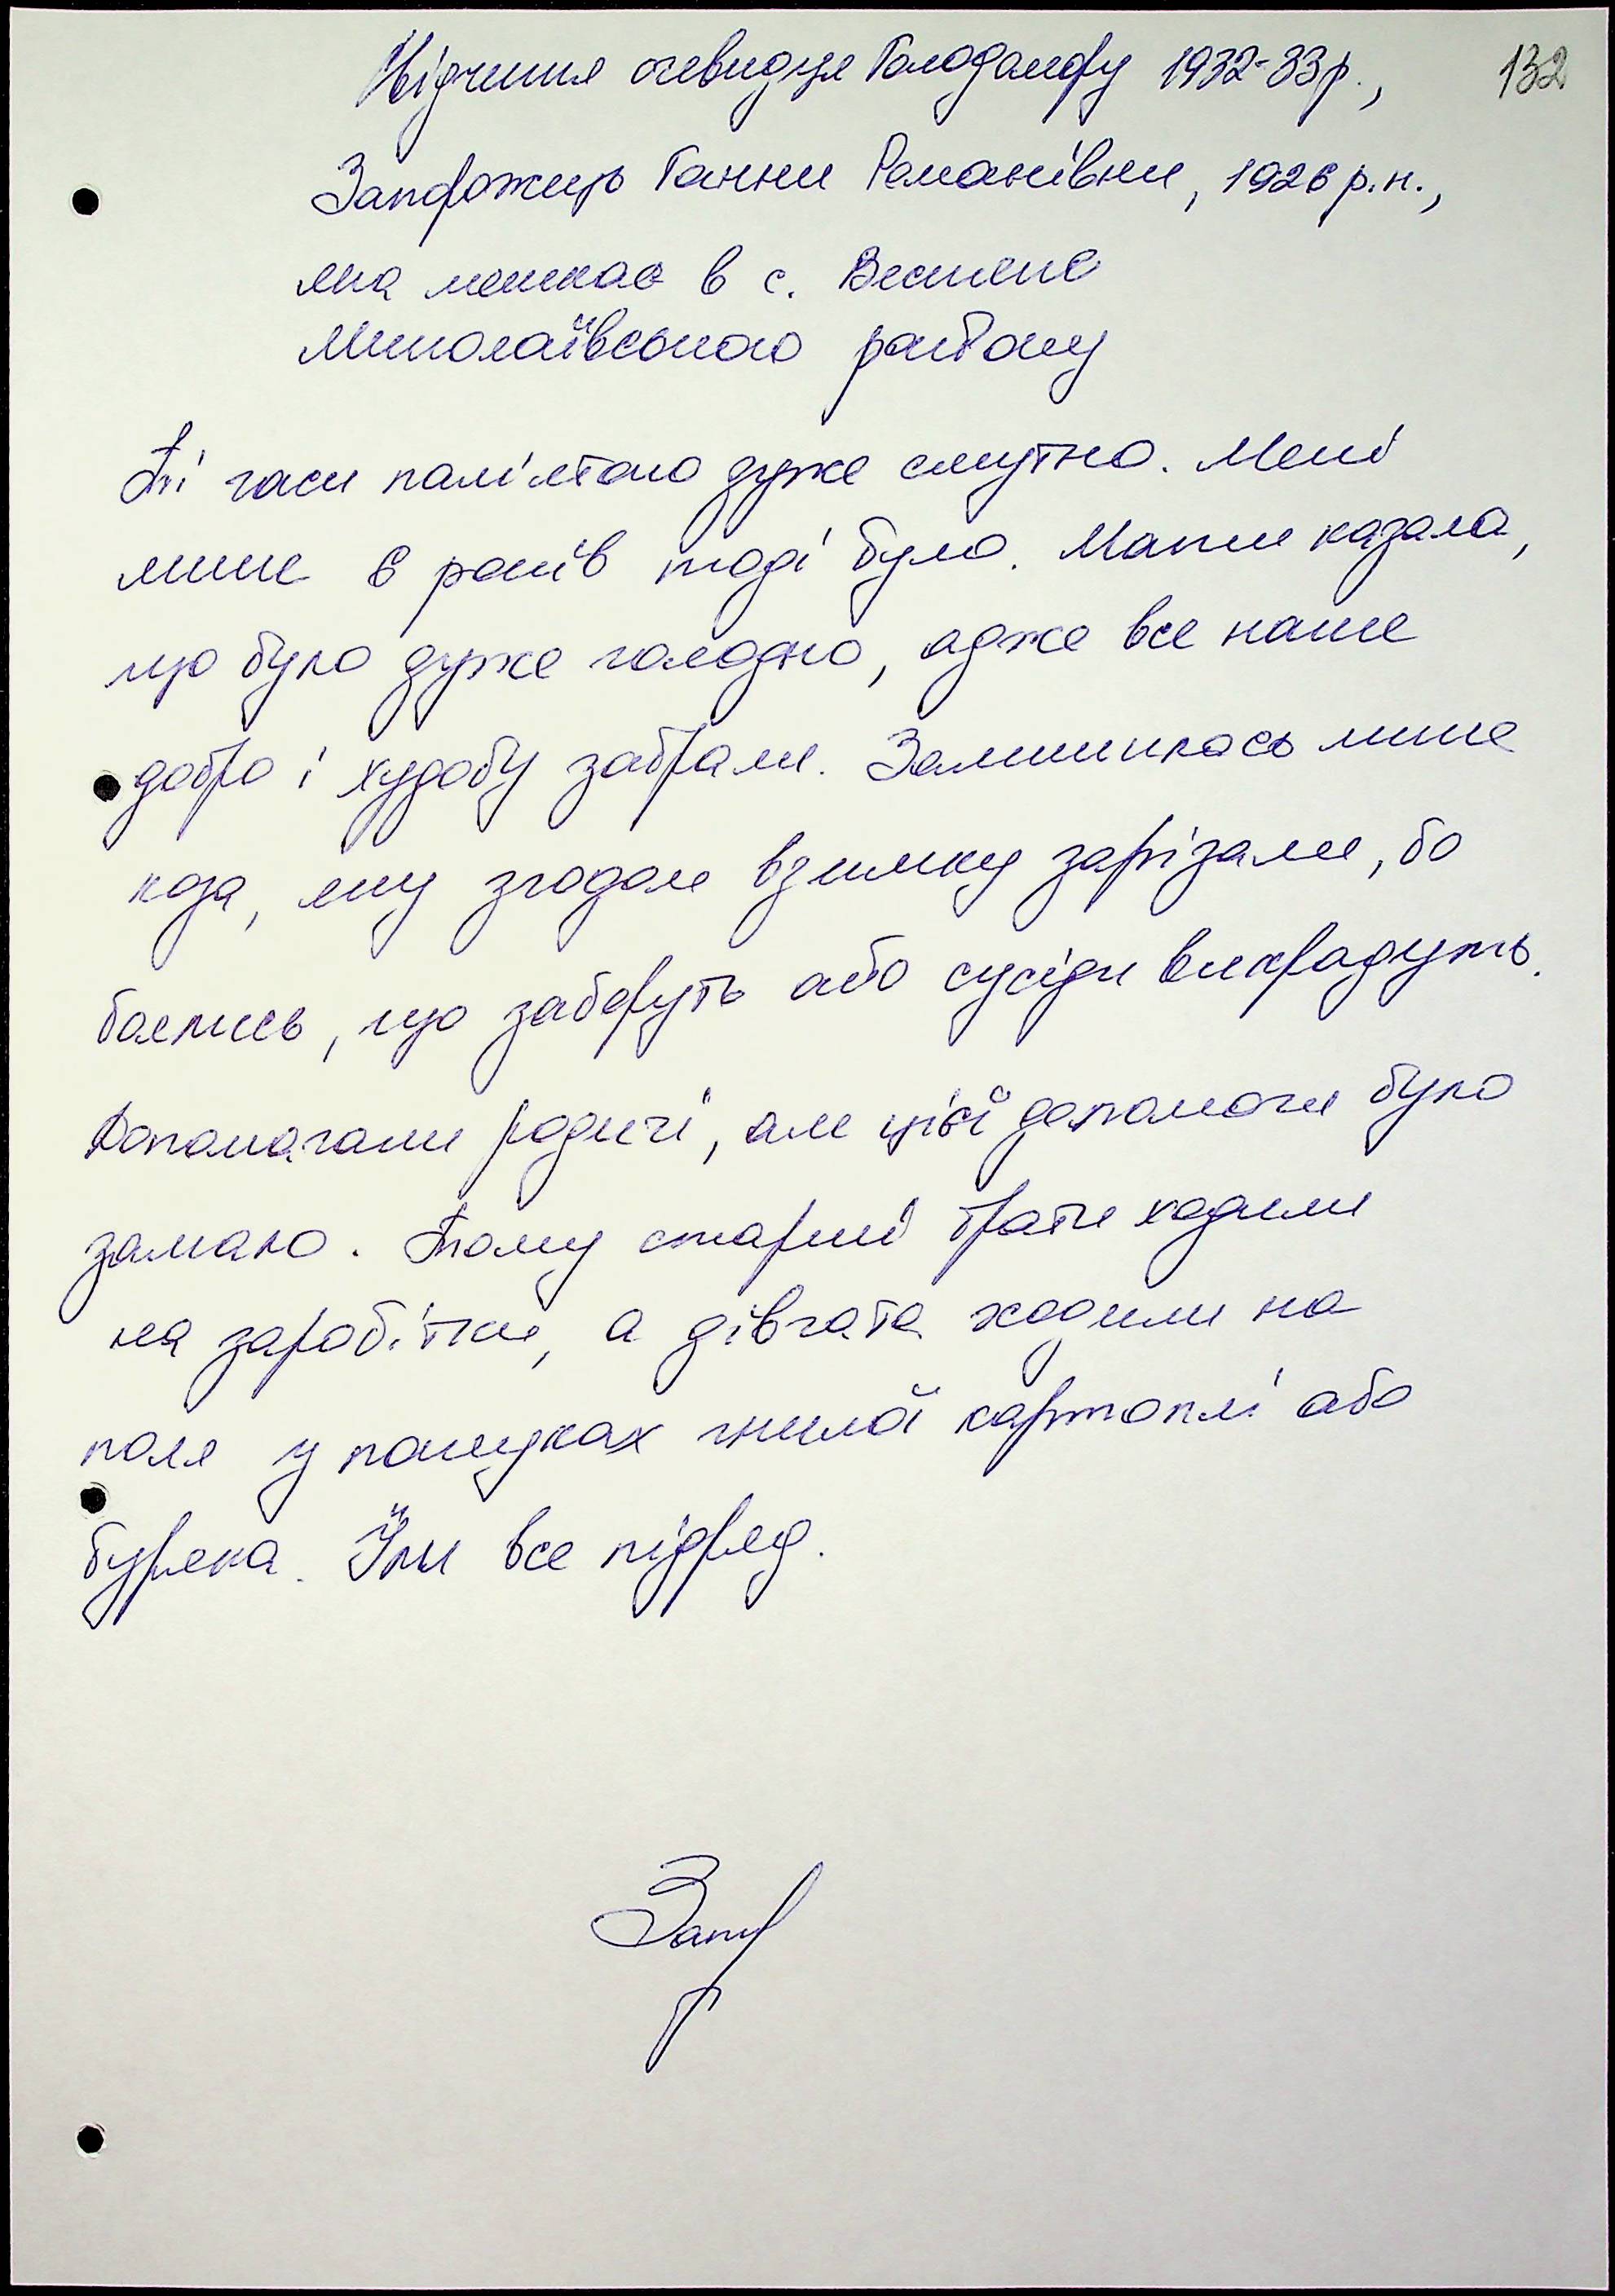 Свідчення очевидця Голодомору 1932-33р., 132
Запорожець Ганни Романівни, 1926 р.н.,
яка мешкає в с. Весняне
Миколаївського району
Ті часи пам'ятаю дуже смутно. Мені
лише 6 років тоді було. Мати казала,
що було дуже голодно, адже все наше
добро і худобу забрали. Залишилась лише
коза, яку згодом взимку зарізали, бо
боялись, що заберуть або сусіди викрадуть.
Допомагали родичі, але цієї допомоги було
замало. Тому старші брати ходили
на заробітки, а дівчата ходили на
поля у пошуках гнилої картоплі або
буряка. Їли все підряд.
Запор